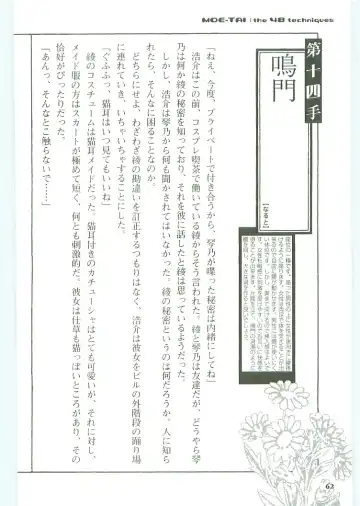 MOE-TAI : the 48 techniques
第十四手
鳴門
【なると】
「ねえ、今度、プライベートで付き合うから、琴乃が喋った秘密は内緒にしてね」
浩介はこの前、コスプレ喫茶で働いている綾からそう言われた。綾と琴乃は友達だが、どうやら琴
乃は何か綾の秘密を知っており、それを彼に話したと綾は思っているようだった。
しかし、浩介は琴乃から何も聞かされてはいなかった。綾の秘密というのは何だろうか。人に知ら
れたら、そんなに困ることなのか。
どちらにせよ、わざわざ綾の勘違いを訂正するつもりはなく、浩介は彼女をビルの外階段の踊り場
に連れていき、いちゃいちゃすることにした。
「ぐふふっ、猫耳はいつ見てもいいね」
綾のコスチュームは猫耳メイドだった。猫耳付きのカチューシャはとても可愛いが、それに対し、
メイド服の方はスカートが極めて短く、何とも刺激的だ。彼女は仕草も猫っぽいところがあり、その
恰好がぴったりだった。
「あんっ、そんなとこ触らないで……」
62